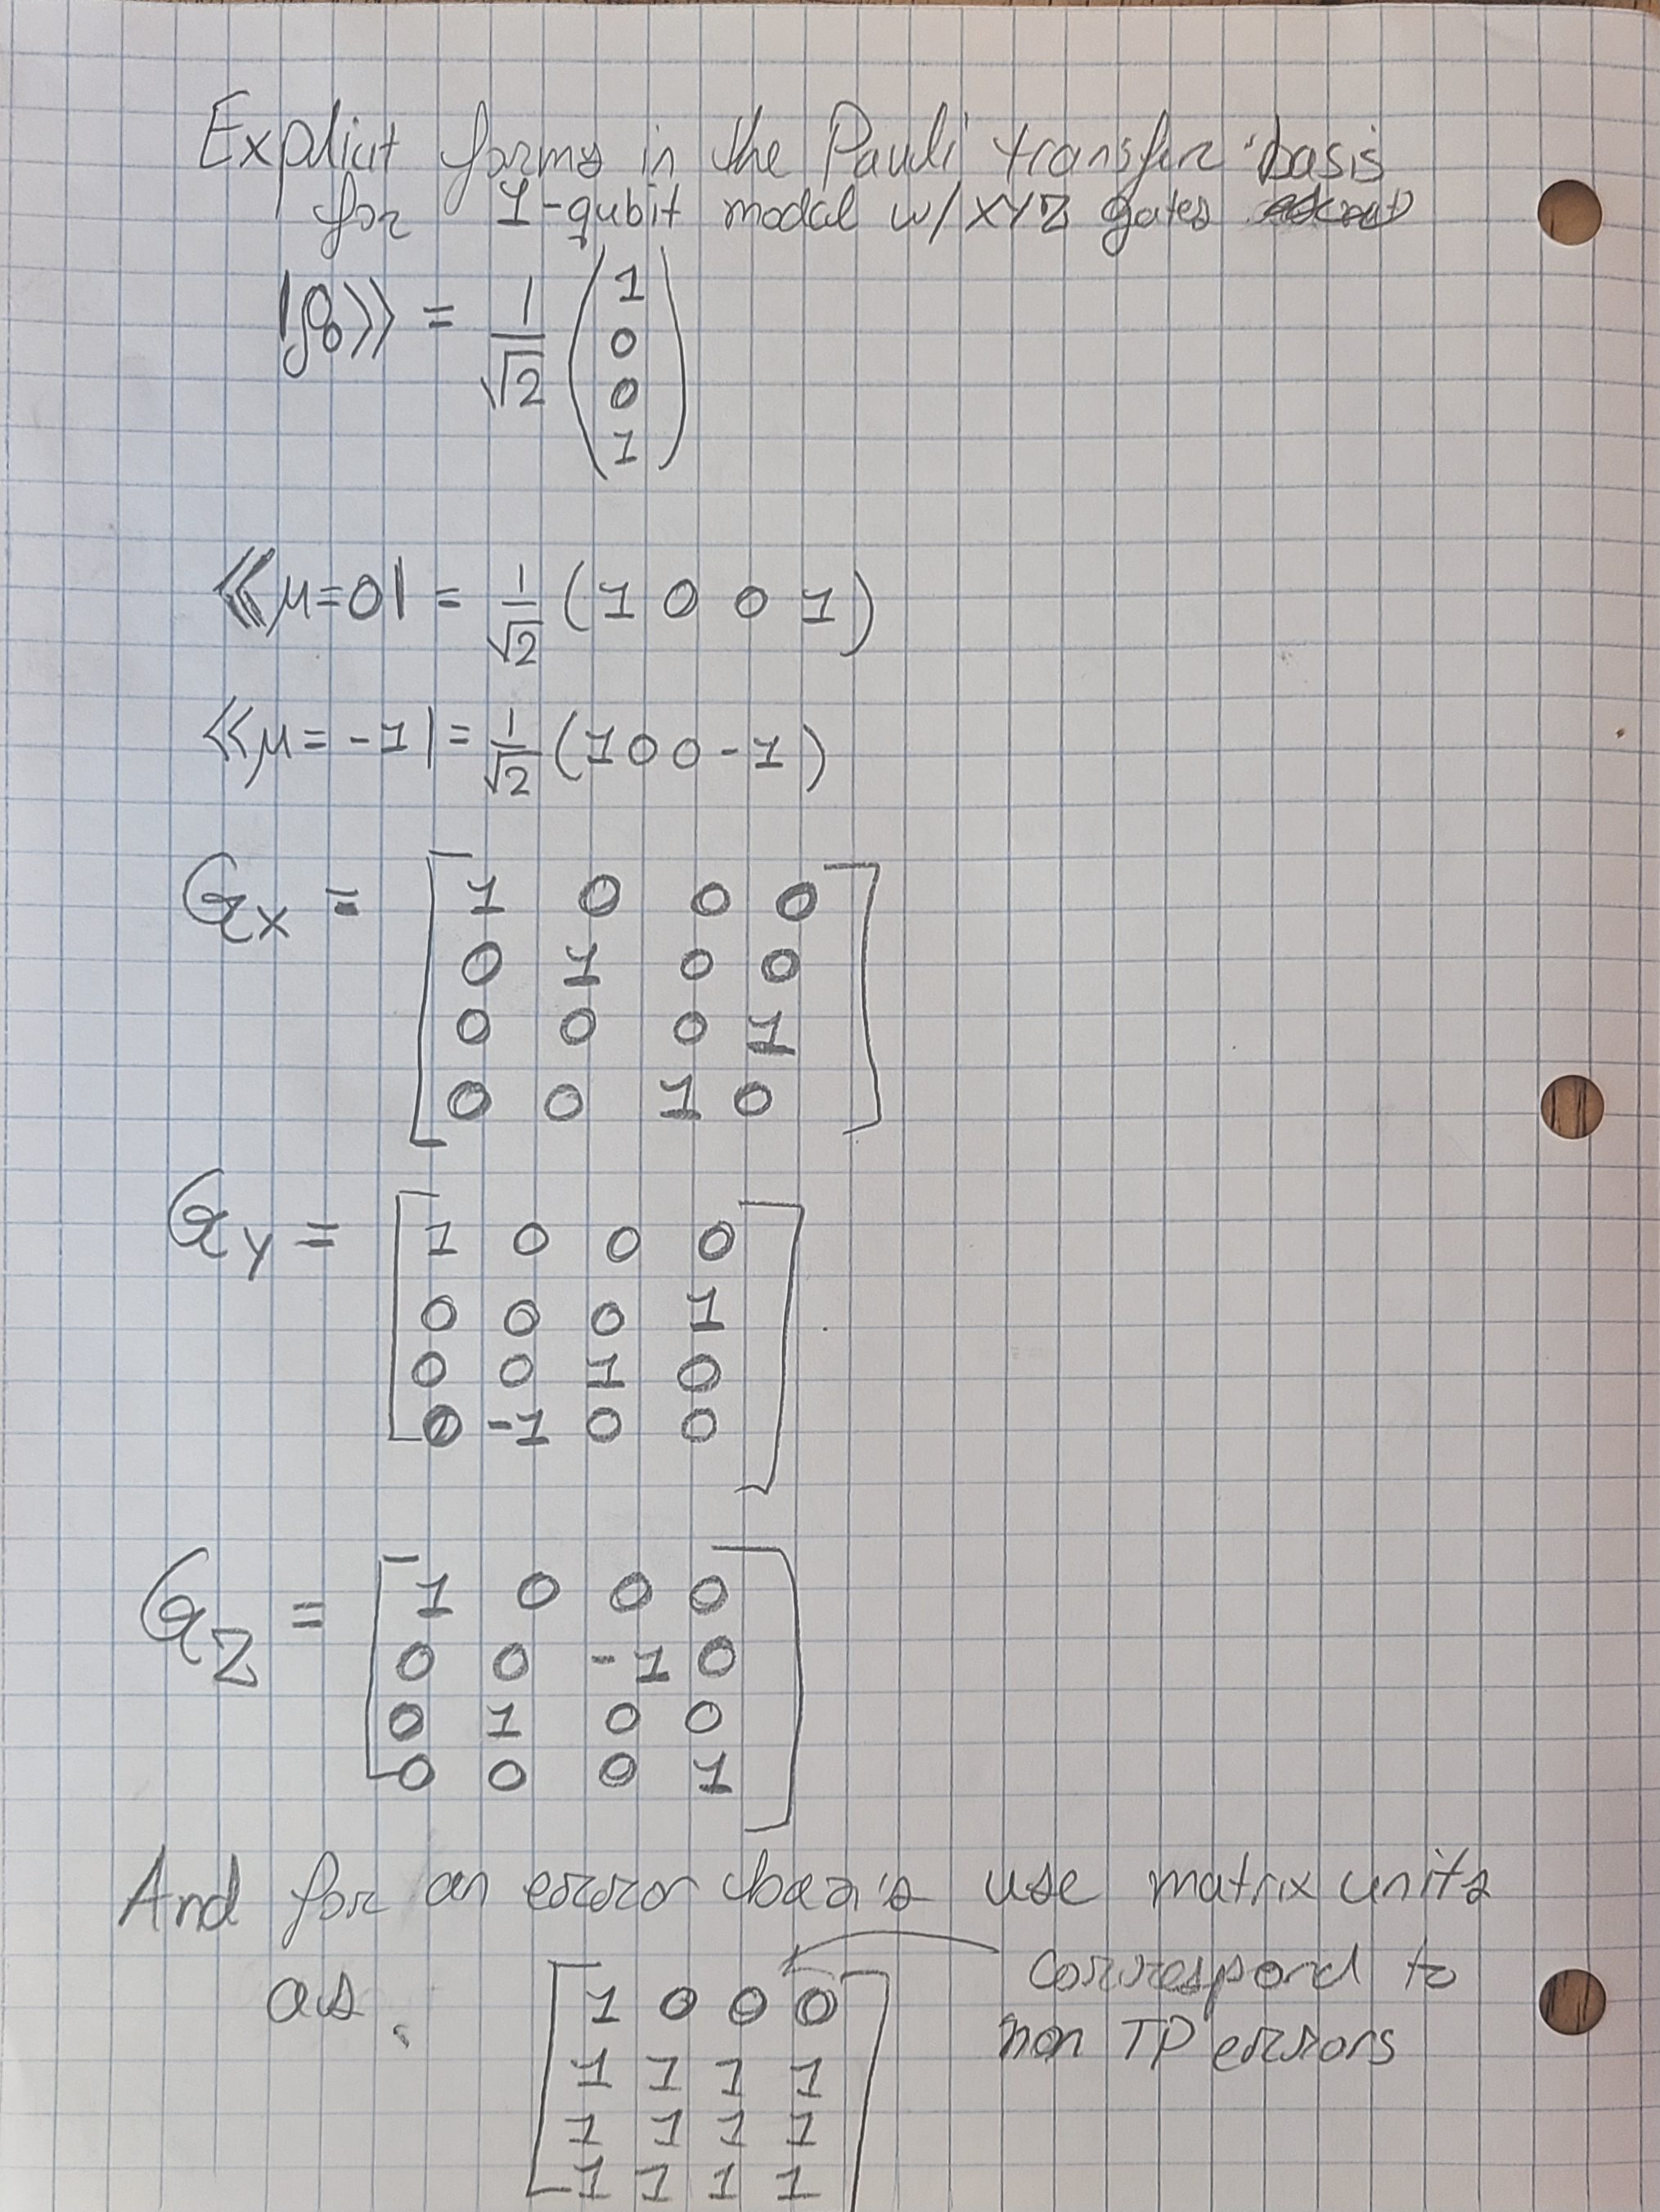 Explicit forms in the Pauli transfer basis
for 1-qubit model w/ XYZ gates
|ρ₀⟩⟩ = 1/√2 (1 0 0 1)
⟨⟨μ=0| = 1/√2 (1 0 0 1)
⟨⟨μ=-1| = 1/√2 (1 0 0 -1)
G_X = [1 0 0 0
0 1 0 0
0 0 0 1
0 0 1 0]
G_Y = [1 0 0 0
0 0 0 1
0 0 1 0
0 -1 0 0]
G_Z = [1 0 0 0
0 0 -1 0
0 1 0 0
0 0 0 1]
And for an error basis use matrix units
as. [1 0 0 0 correspond to
1 1 1 1 non TP errors
1 1 1 1
1 1 1 1]